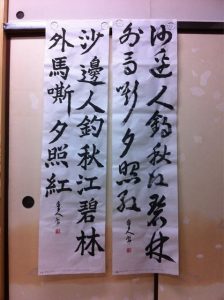 沙邊人釣秋江碧林
外馬嘶夕照紅
沙邊人釣秋江碧林
外馬嘶夕照紅